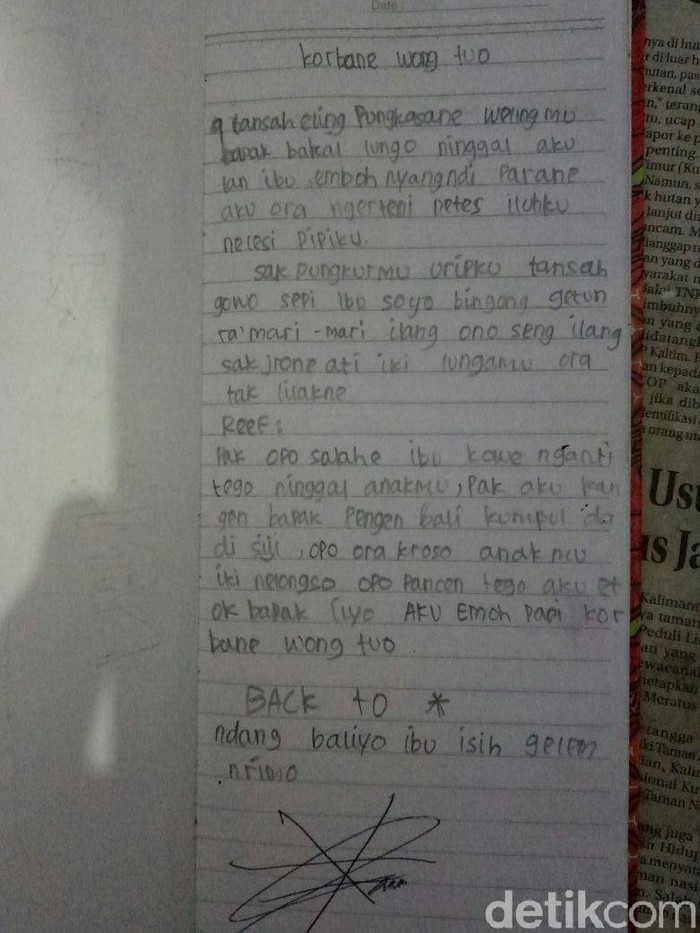 Date :
korbane wong tuo
q tansah eling Pungkasane weling mu
bapak bakal lungo ninggal aku
lan ibu, emboh nyangndi Parane
aku ora ngerteni netes iluhku
nelesi Pipiku.
sak pungkurmu uripku tansah
gowo sepi ibu soyo bingung getun
ra'mari-mari ilang ono seng ilang
sak jrone ati iki lungamu ora
tak lilakne
ReeF:
Pak opo salahe ibu kowe nganti
tego ninggal anakmu, Pak aku kan
gen bapak Pengen bali kumpul da
di siji, opo ora kroso anak mu
iki nelongso opo Pancen tego aku et
ok bapak liyo AKU Emoh Papi kor
bane wong tuo.
BACK to *
ndang baliyo ibu isih gelem
nrimo
nya di hut
r di luar h
hutan, pas
rkenal se
n," terang
tu, ucap
apor ke p
penting.
imur (Ku
Namun, s
k hutan y
lanjut di
ancam. M
anggap n
an yang d
yarakat n
imbuhny
n yang
didatangk
Kaltim.
an kepada
COP aka
jika dib
dentifikasi
a orang uta
Usu
us Ja
Kalimant
va taman
Peduli Li
an yang
ewacanal
netapkan
Meratus
etangga
ki Taman
ian, Kali
sional Ku
Taman N
ang juga
an Hidup
a menyata
man nasi
n. Salah
detikcom